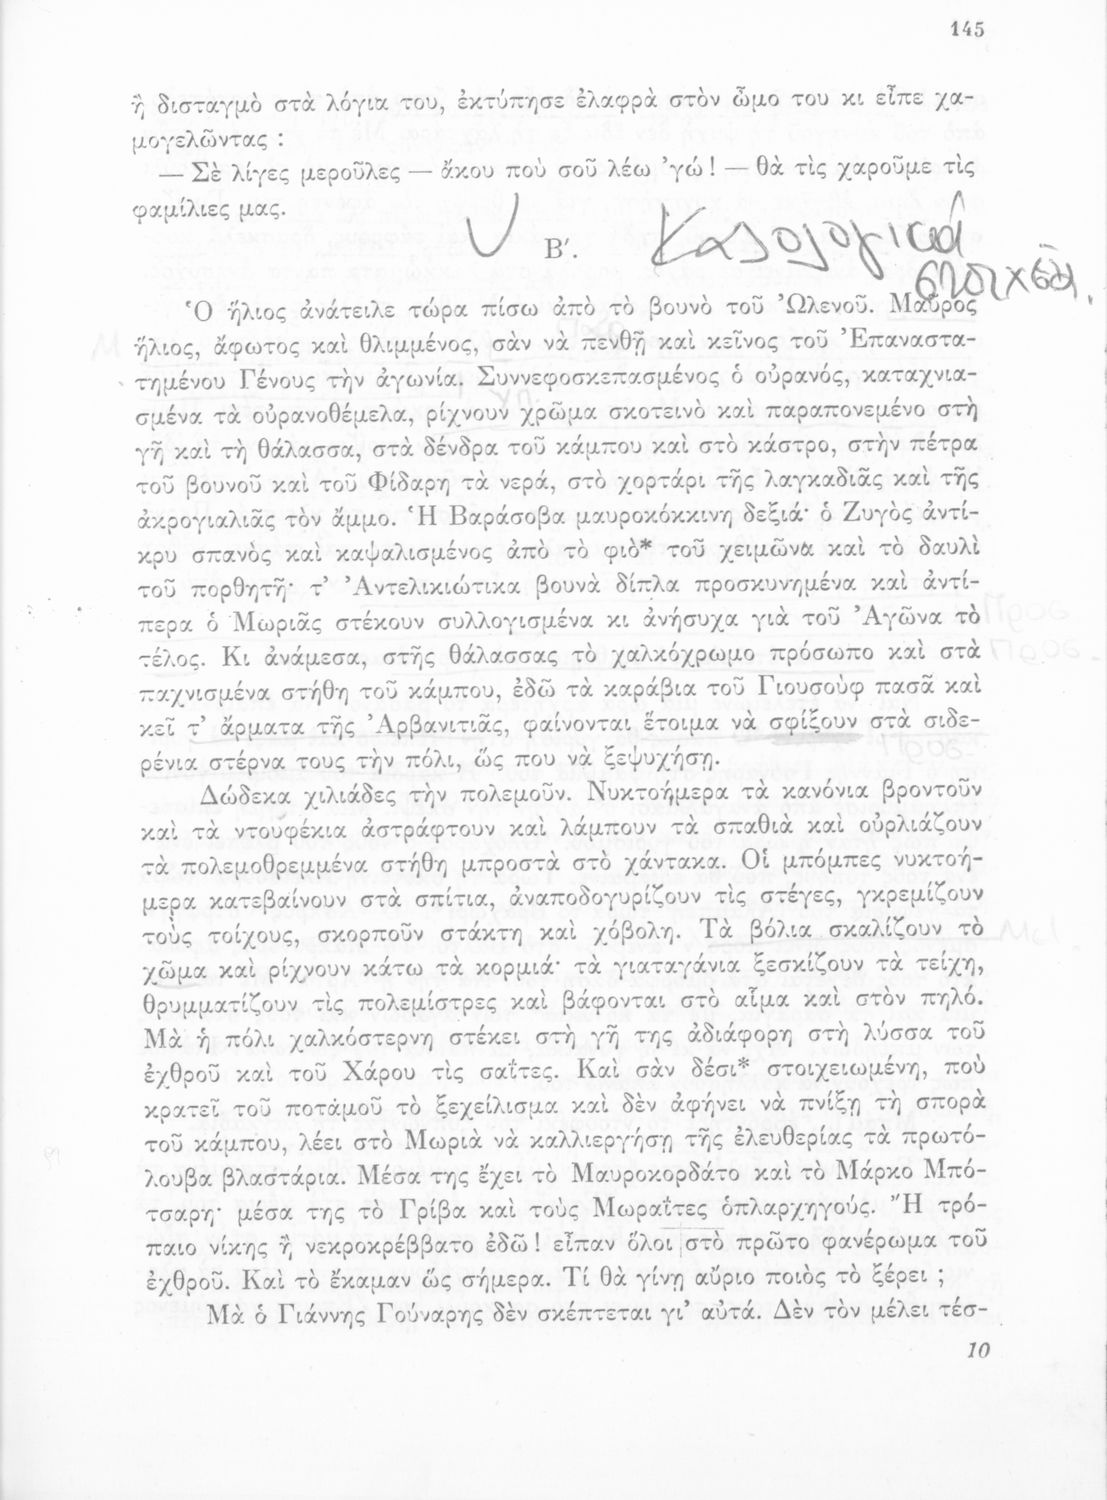 145
ἢ δισταγμὸ στὰ λόγια του, ἐκτύπησε ἐλαφρὰ στὸν ὦμο του κι εἶπε χα-
μογελῶντας :
— Σὲ λίγες μεροῦλες — ἄκου ποὺ σοῦ λέω ’γώ! — θὰ τὶς χαροῦμε τὶς
φαμίλιες μας.
Β′.
Καλολογικά
στοιχεῖα.
Ὁ ἥλιος ἀνάτειλε τώρα πίσω ἀπὸ τὸ βουνὸ τοῦ Ὠλενοῦ. Μαῦρος
ἥλιος, ἄφωτος καὶ θλιμμένος, σὰν νὰ πενθῇ καὶ κεῖνος τοῦ Ἐπαναστα-
τημένου Γένους τὴν ἀγωνία. Συννεφοσκεπασμένος ὁ οὐρανός, καταχνια-
σμένα τὰ οὐρανοθέμελα, ρίχνουν χρῶμα σκοτεινὸ καὶ παραπονεμένο στὴ
γῆ καὶ τὴ θάλασσα, στὰ δένδρα τοῦ κάμπου καὶ στὸ κάστρο, στὴν πέτρα
τοῦ βουνοῦ καὶ τοῦ Φίδαρη τὰ νερά, στὸ χορτάρι τῆς λαγκαδιᾶς καὶ τῆς
ἀκρογιαλιᾶς τὸν ἄμμο. Ἡ Βαράσοβα μαυροκόκκινη δεξιά· ὁ Ζυγὸς ἀντί-
κρυ σπανὸς καὶ καψαλισμένος ἀπὸ τὸ φιὸ* τοῦ χειμῶνα καὶ τὸ δαυλὶ
τοῦ πορθητῆ· τ’ Ἀντελικιώτικα βουνὰ δίπλα προσκυνημένα καὶ ἀντί-
περα ὁ Μωριᾶς στέκουν συλλογισμένα κι ἀνήσυχα γιὰ τοῦ Ἀγῶνα τὸ
τέλος. Κι ἀνάμεσα, στῆς θάλασσας τὸ χαλκόχρωμο πρόσωπο καὶ στὰ
παχνισμένα στήθη τοῦ κάμπου, ἐδῶ τὰ καράβια τοῦ Γιουσοὺφ πασᾶ καὶ
κεῖ τ’ ἄρματα τῆς Ἀρβανιτιᾶς, φαίνονται ἕτοιμα νὰ σφίξουν στὰ σιδε-
ρένια στέρνα τους τὴν πόλι, ὥς που νὰ ξεψυχήσῃ.
Δώδεκα χιλιάδες τὴν πολεμοῦν. Νυκτοήμερα τὰ κανόνια βροντοῦν
καὶ τὰ ντουφέκια ἀστράφτουν καὶ λάμπουν τὰ σπαθιὰ καὶ οὐρλιάζουν
τὰ πολεμοθρεμμένα στήθη μπροστὰ στὸ χάντακα. Οἱ μπόμπες νυκτοή-
μερα κατεβαίνουν στὰ σπίτια, ἀναποδογυρίζουν τὶς στέγες, γκρεμίζουν
τοὺς τοίχους, σκορποῦν στάκτη καὶ χόβολη. Τὰ βόλια σκαλίζουν τὸ
χῶμα καὶ ρίχνουν κάτω τὰ κορμιά· τὰ γιαταγάνια ξεσκίζουν τὰ τείχη,
θρυμματίζουν τὶς πολεμίστρες καὶ βάφονται στὸ αἷμα καὶ στὸν πηλό.
Μὰ ἡ πόλι χαλκόστερνη στέκει στὴ γῆ της ἀδιάφορη στὴ λύσσα τοῦ
ἐχθροῦ καὶ τοῦ Χάρου τὶς σαΐτες. Καὶ σὰν δέσι* στοιχειωμένη, ποὺ
κρατεῖ τοῦ ποτάμοῦ τὸ ξεχείλισμα καὶ δὲν ἀφήνει νὰ πνίξῃ τὴ σπορὰ
τοῦ κάμπου, λέει στὸ Μωριὰ νὰ καλλιεργήσῃ τῆς ἐλευθερίας τὰ πρωτό-
λουβα βλαστάρια. Μέσα της ἔχει τὸ Μαυροκορδάτο καὶ τὸ Μάρκο Μπό-
τσαρη· μέσα της τὸ Γρίβα καὶ τοὺς Μωραΐτες ὁπλαρχηγούς. Ἢ τρό-
παιο νίκης ἢ νεκροκρέββατο ἐδῶ! εἶπαν ὅλοι στὸ πρῶτο φανέρωμα τοῦ
ἐχθροῦ. Καὶ τὸ ἔκαμαν ὥς σήμερα. Τί θὰ γίνῃ αὔριο ποιὸς τὸ ξέρει ;
Μὰ ὁ Γιάννης Γούναρης δὲν σκέπτεται γι’ αὐτά. Δὲν τὸν μέλει τέσ-
10